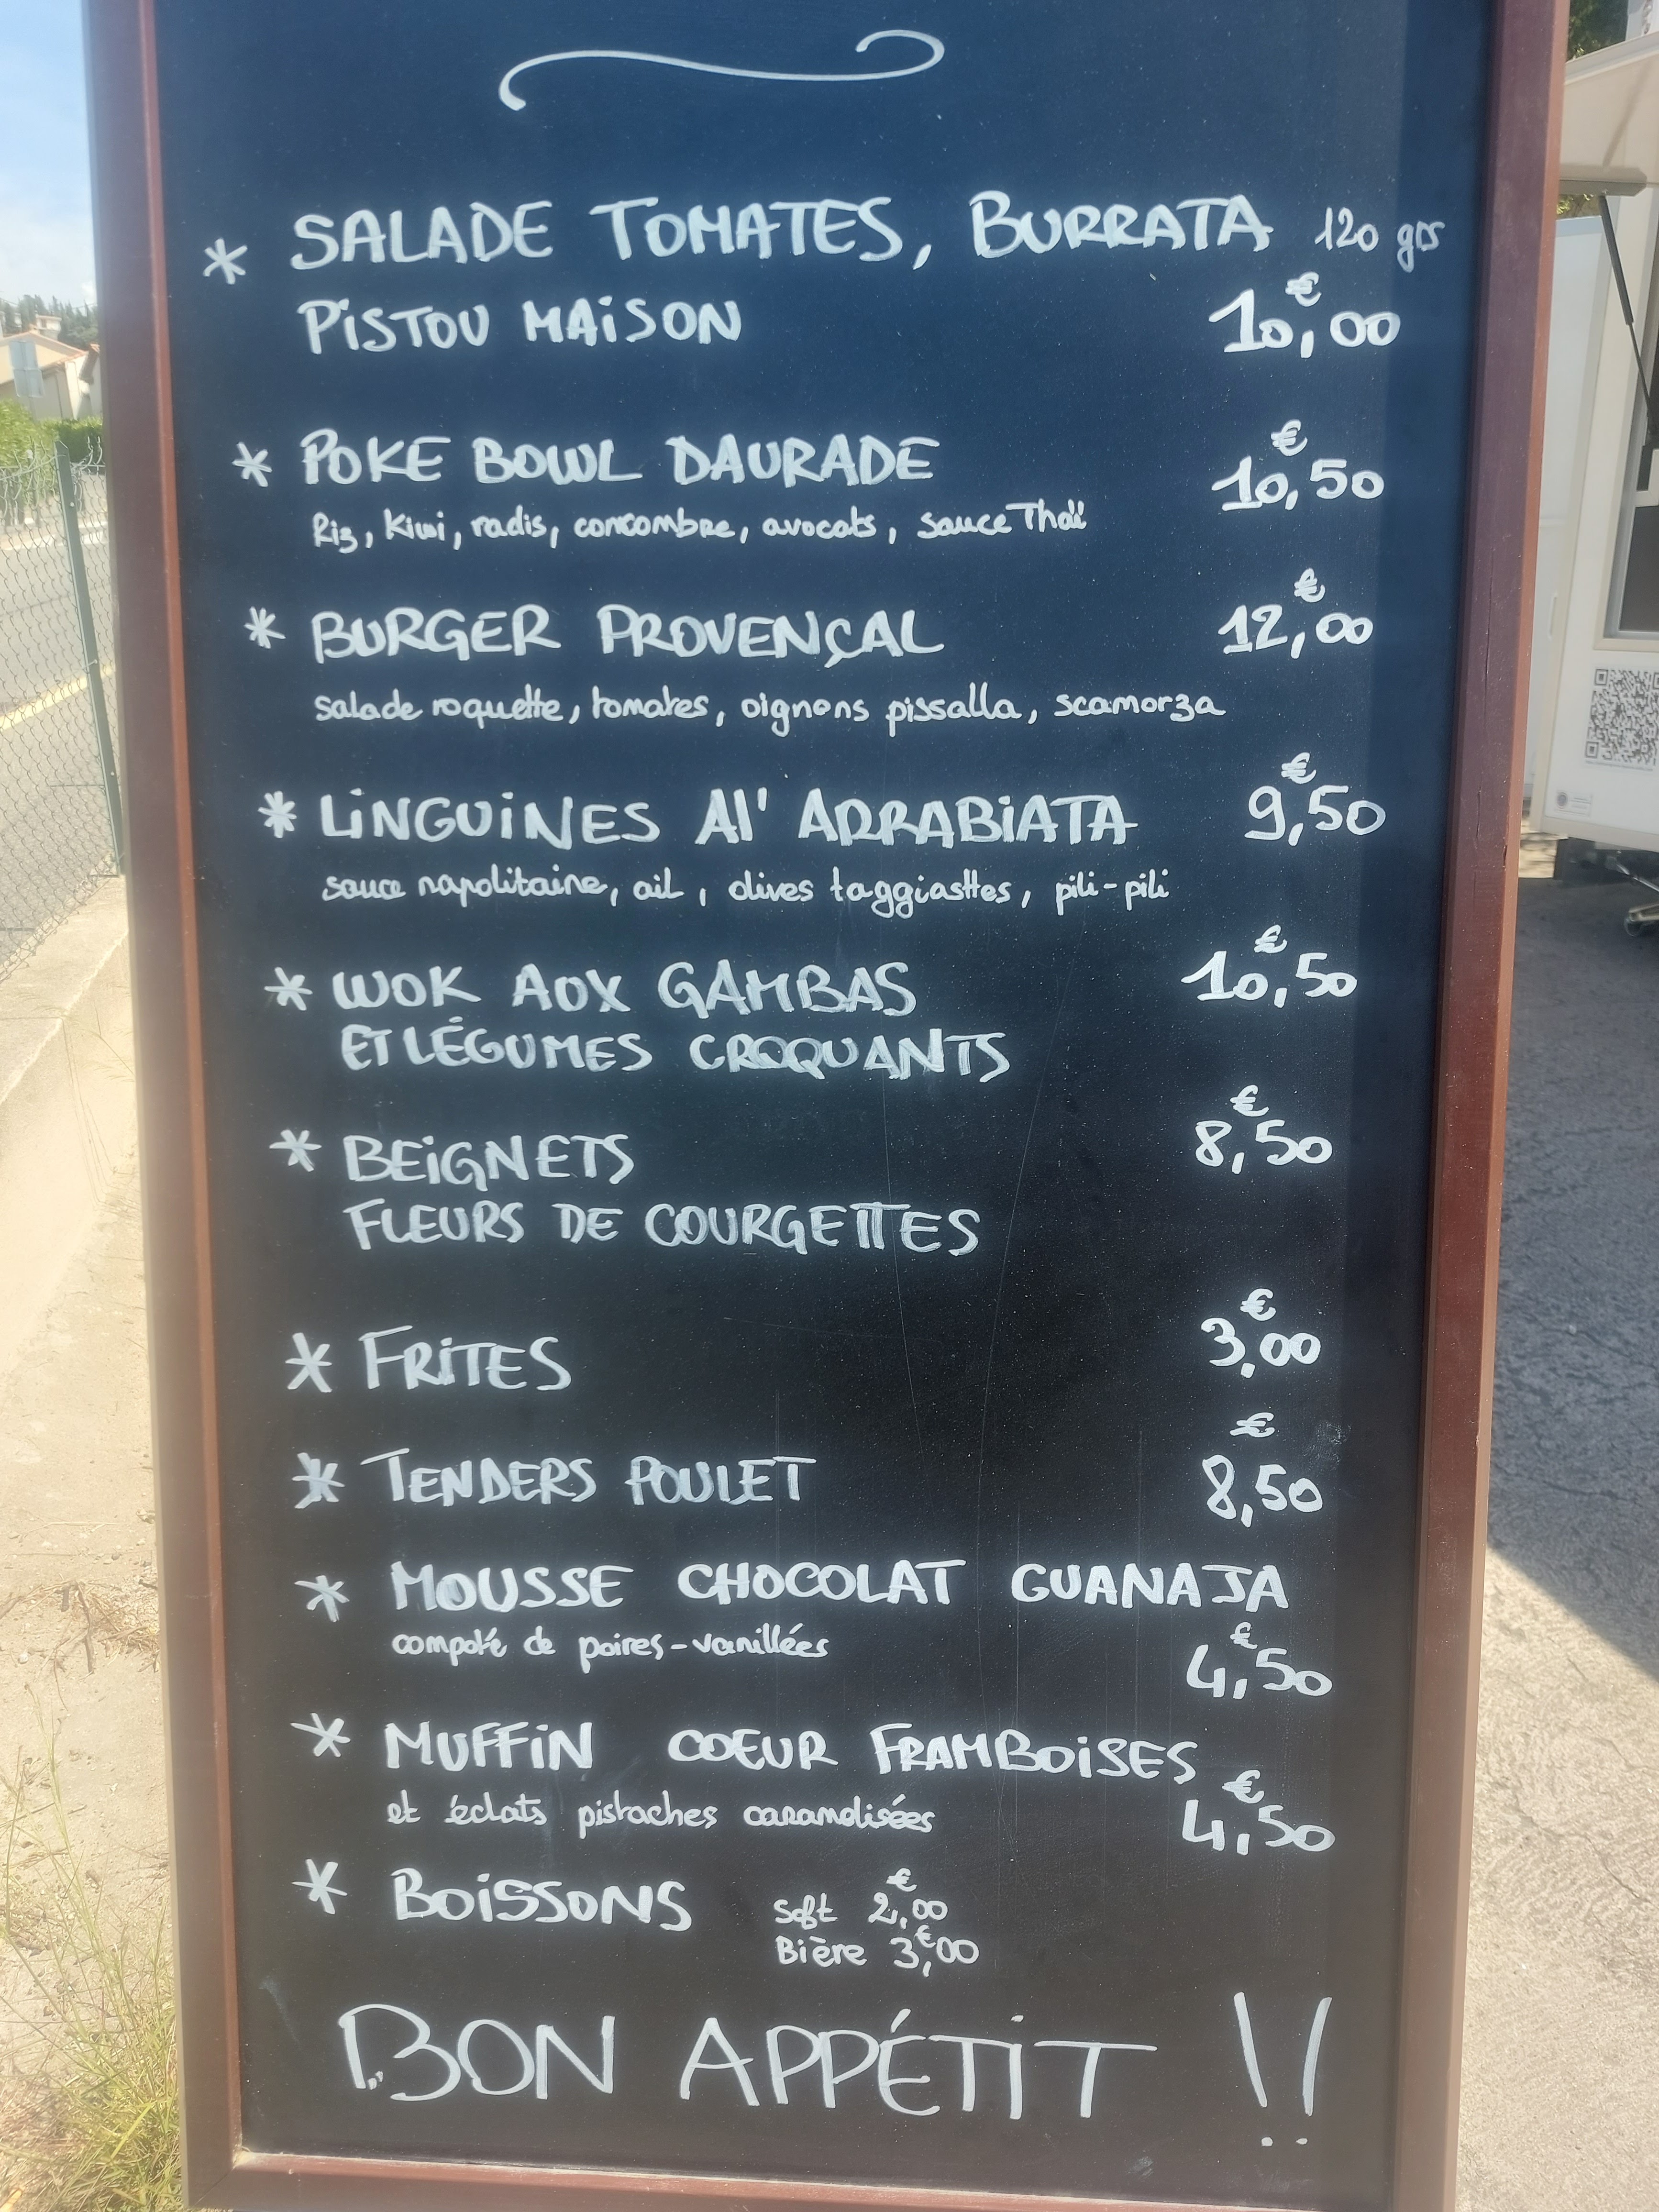 * SALADE TOMATES, BURRATA 120 grs
PISTOU MAISON 10,00 €
* POKE BOWL DAURADE 10,50 €
Riz, Kiwi, radis, concombre, avocats, sauce Thaï
* BURGER PROVENÇAL 12,00 €
salade roquette, tomates, oignons pissalla, scamorza
* LINGUINES Al' ARRABIATA 9,50 €
sauce napolitaine, ail, olives taggiasttes, pili-pili
* WOK AUX GAMBAS 10,50 €
ET LÉGUMES CROQUANTS
* BEIGNETS 8,50 €
FLEURS DE COURGETTES
* FRITES 3,00 €
* TENDERS POULET 8,50 €
* MOUSSE CHOCOLAT GUANAJA
compoté de poires-vanillées 4,50 €
* MUFFIN COEUR FRAMBOISES
et éclats pistaches caramelisées 4,50 €
* BOISSONS soft 2,00 €
Bière 3,00 €
BON APPÉTIT !!